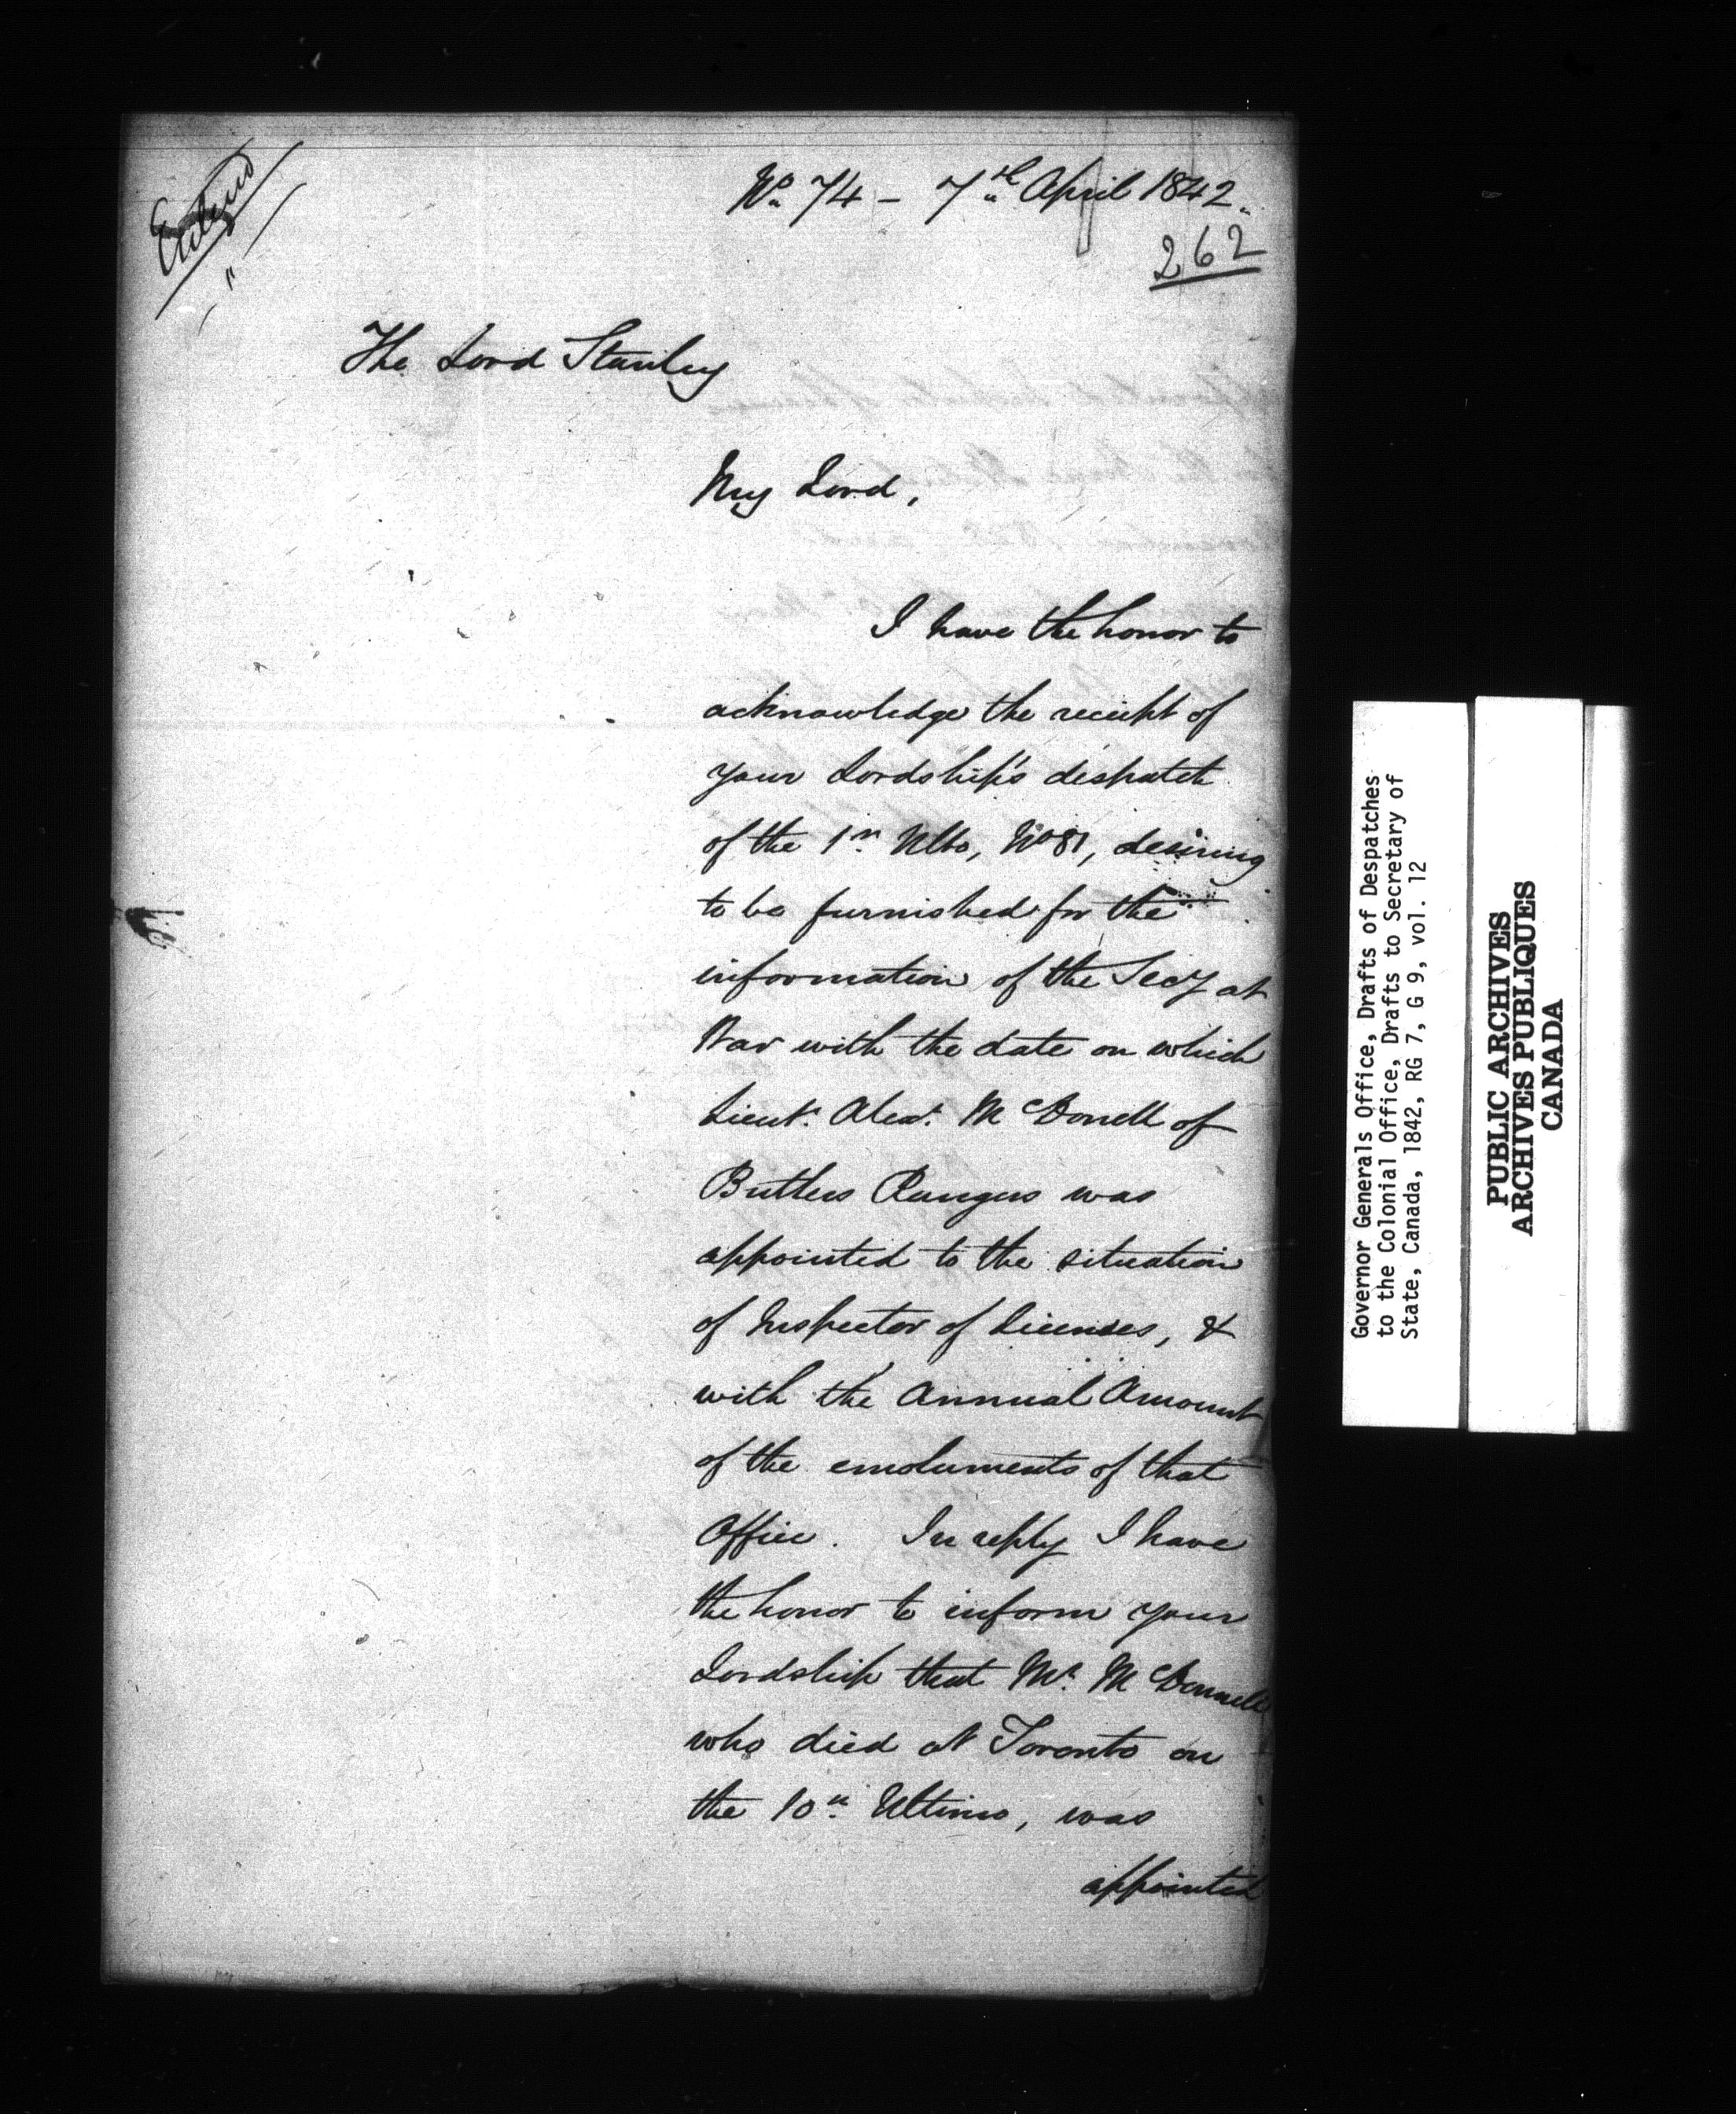 Entered
No. 74 – 7th April 1842.
262
The Lord Stanley
My Lord,
I have the honor to
acknowledge the receipt of
your Lordship's despatch
of the 1st Ulto, No 81, desiring
to be furnished for the
information of the Secy at
War with the date on which
Lieut. Alexr. McDonell of
Butlers Rangers was
appointed to the situation
of Inspector of Licenses, &
with the Annual Amount
of the emoluments of that
Office. In reply I have
the honor to inform your
Lordship that Mr. McDonnell
who died at Toronto on
the 10th Ultimo, was
appointed
Governor Generals Office, Drafts of Despatches
to the Colonial Office, Drafts to Secretary of
State, Canada, 1842, RG 7, G 9, vol. 12
PUBLIC ARCHIVES
ARCHIVES PUBLIQUES
CANADA